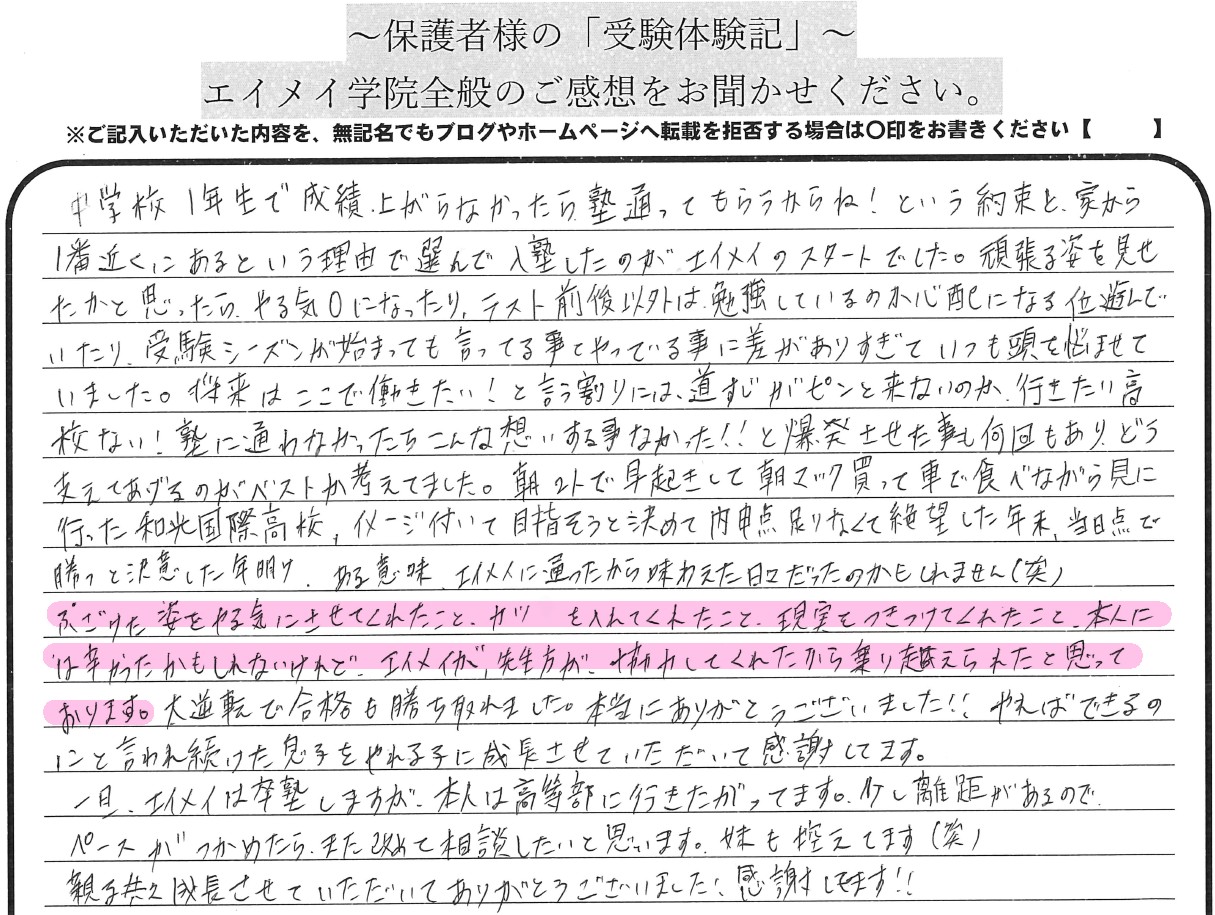 ～保護者様の「受験体験記」～
エイメイ学院全般のご感想をお聞かせください。
※ご記入いただいた内容を、無記名でもブログやホームページへ転載を拒否する場合は〇印をお書きください【　　】
中学校1年生で成績上がらなかったら塾通ってもらうからね！という約束と、家から
1番近くにあるという理由で選んで入塾したのがエイメイのスタートでした。頑張る姿を見せ
たかと思ったら、やる気0になったり、テスト前後以外は勉強しているのか心配になる位遊んで
いたり、受験シーズンが始まっても言ってる事とやっている事に差がありすぎていつも頭を悩ませて
いました。将来はここで働きたい！と言う割りには、道すじがピンと来ないのか、行きたい高
校ない！塾に通わなかったらこんな想いする事なかった！！と爆発させた事も何回もあり、どう
支えてあげるのがベストか考えてました。朝2人で早起きして朝マック買って車で食べながら見に
行った和光国際高校、イメージ付いて目指そうと決めて内申点足りなくて絶望した年末、当日点で
勝つと決意した年明け、ある意味、エイメイに通ったから味わえた日々だったのかもしれません(笑)
ふざけた姿をやる気にさせてくれたこと、ガツを入れてくれたこと、現実をつきつけてくれたこと、本人に
は辛かったかもしれないけれど、エイメイが、先生方が、協力してくれたから乗り越えられたと思って
おります。大逆転で合格も勝ち取れました。本当にありがとうございました！！やればできるの
にと言われ続けた息子をやれる子に成長させていただいて感謝してます。
一旦、エイメイは卒塾しますが、本人は高等部に行きたがってます。少し離距があるので、
ペースがつかめたら、また改めて相談したいと思います。妹も控えてます(笑)
親子共々成長させていただいてありがとうございました、感謝してます！！